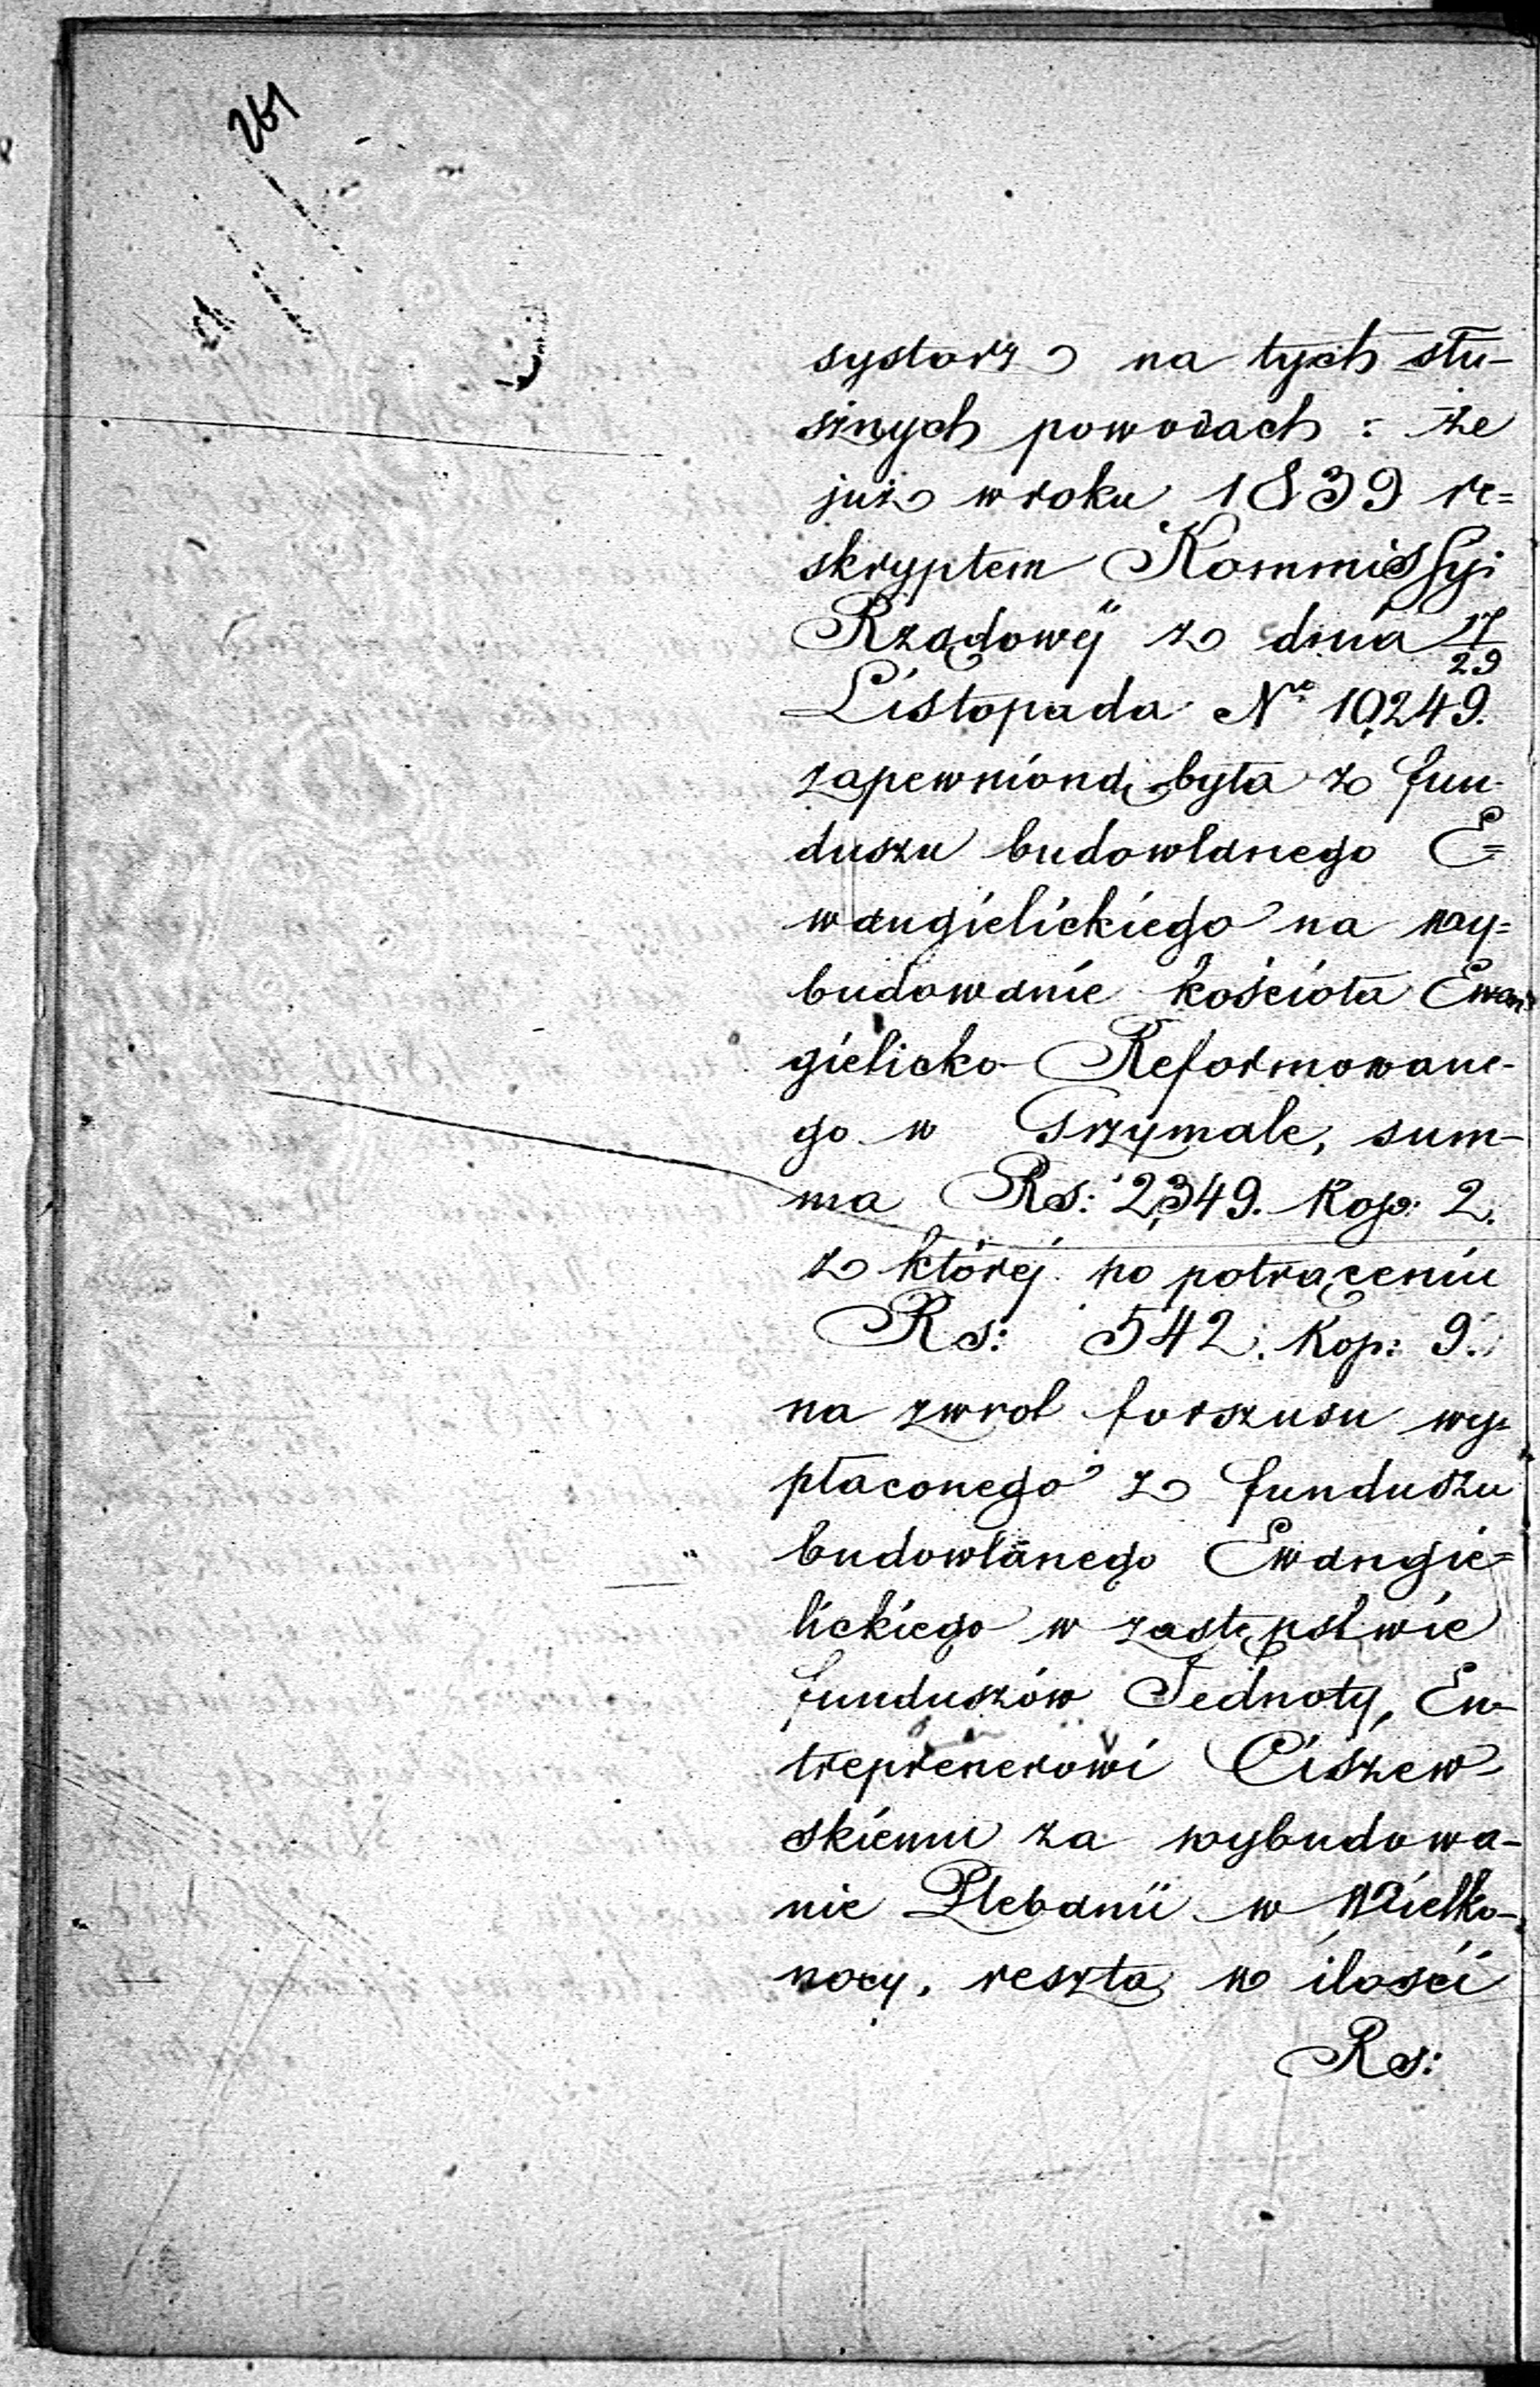 261
systorz na tych słu-
sznych powodach: że
już w roku 1839 re=
skryptem Kommissyi
Rządowéj z dnia 17/29
Listopada No 10,249.
zapewnioną była z fun-
duszu budowlanego E=
wangielickiego na wy=
budowanie kościoła Ewan=
gielicko-Reformowane-
go w Grzymale, sum-
ma Rs: 2,349. Kop: 2.
z któréj po potrąceniu
Rs: 542. Kop: 9.
na zwrot forszusu wy=
płaconego z funduszu
budowlanego Ewangie=
lickiego w zastępstwie
funduszów Jednoty, En-
treprenerowi Ciszew-
skiemu za wybudowa-
nie Plebanii w Wielko-
nocy, reszta w ilości
Rs: